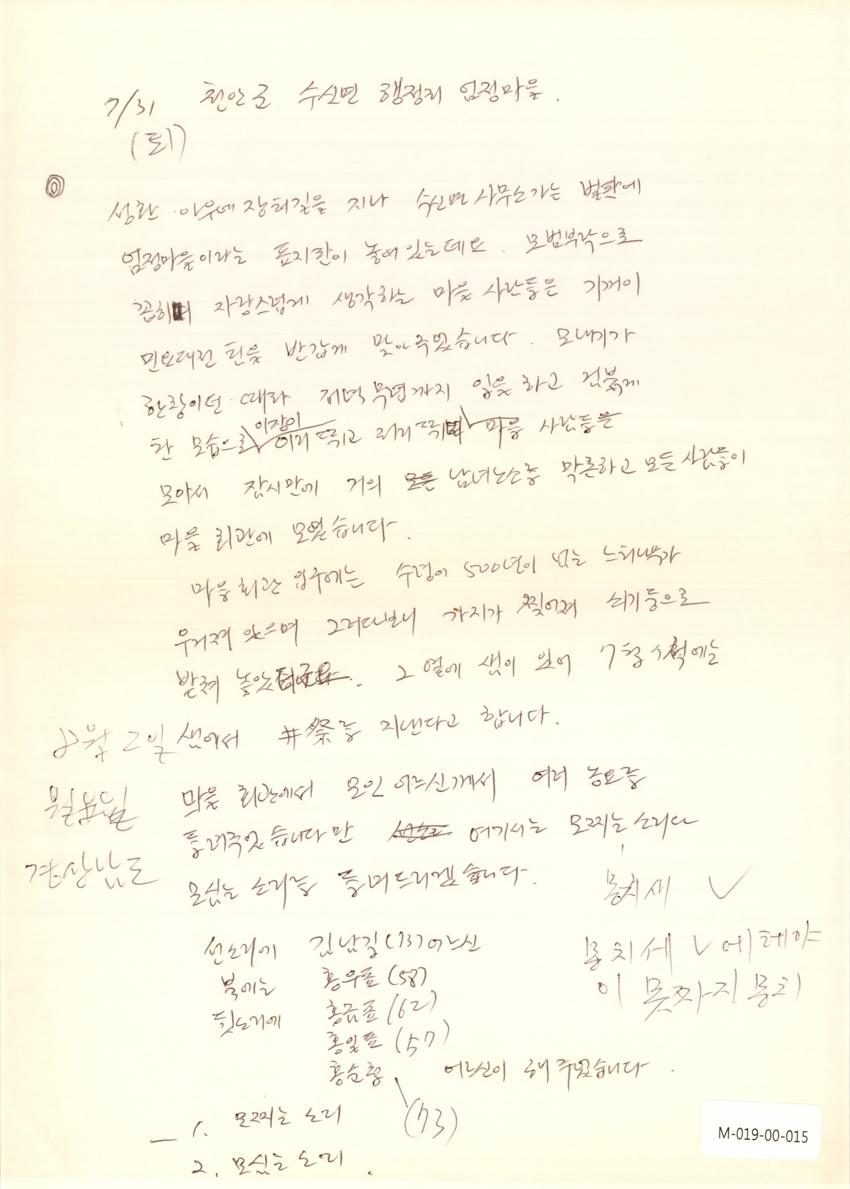 7/31 천안군 수신면 행정리 엄정마을.
(토)
성환 아우내 장터길을 지나 수신면 사무소 가는 벌판에
엄정마을이라는 표지판이 놓여 있는데요. 모범부락으로
꼽히며 자랑스럽게 생각하는 마을 사람들은 기꺼이
민요대전 팀을 반갑게 맞아주었습니다. 모내기가
한창이던 때라 저녁 무렵까지 일을 하고 검붉게
탄 모습으로 이장이 이리 뛰고 저리 뛰며 마을 사람들을
모아서 잠시만에 거의 모든 남녀노소를 막론하고 모든 사람들이
마을 회관에 모였습니다.
마을회관 입구에는 수령이 500년이 넘는 느티나무가
우거져 있으며 그러다보니 가지가 찢어져 쇠기둥으로
받쳐 놓았 그 옆에 샘이 있어 7월 칠석에는
샘에서 井祭를 지낸다고 합니다.
8월 2일
월요일
경상남도
마을 회관에서 모인 어르신께서 여러 농요를
들려주었습니다만 여기서는 모찌는 소리와
모심는 소리를 들려드리겠습니다.
뭉치세 ✓
뭉치세 ✓ 에헤야
이 못짜리 뭉치
선소리에 김남길(73)어르신
북에는 홍우표(58)
뒷소리에 홍금표(62)
홍일표(57)
홍순형 어르신이 해 주었습니다.
(73)
1. 모찌는 소리
2. 모심는 소리.
M-019-00-015